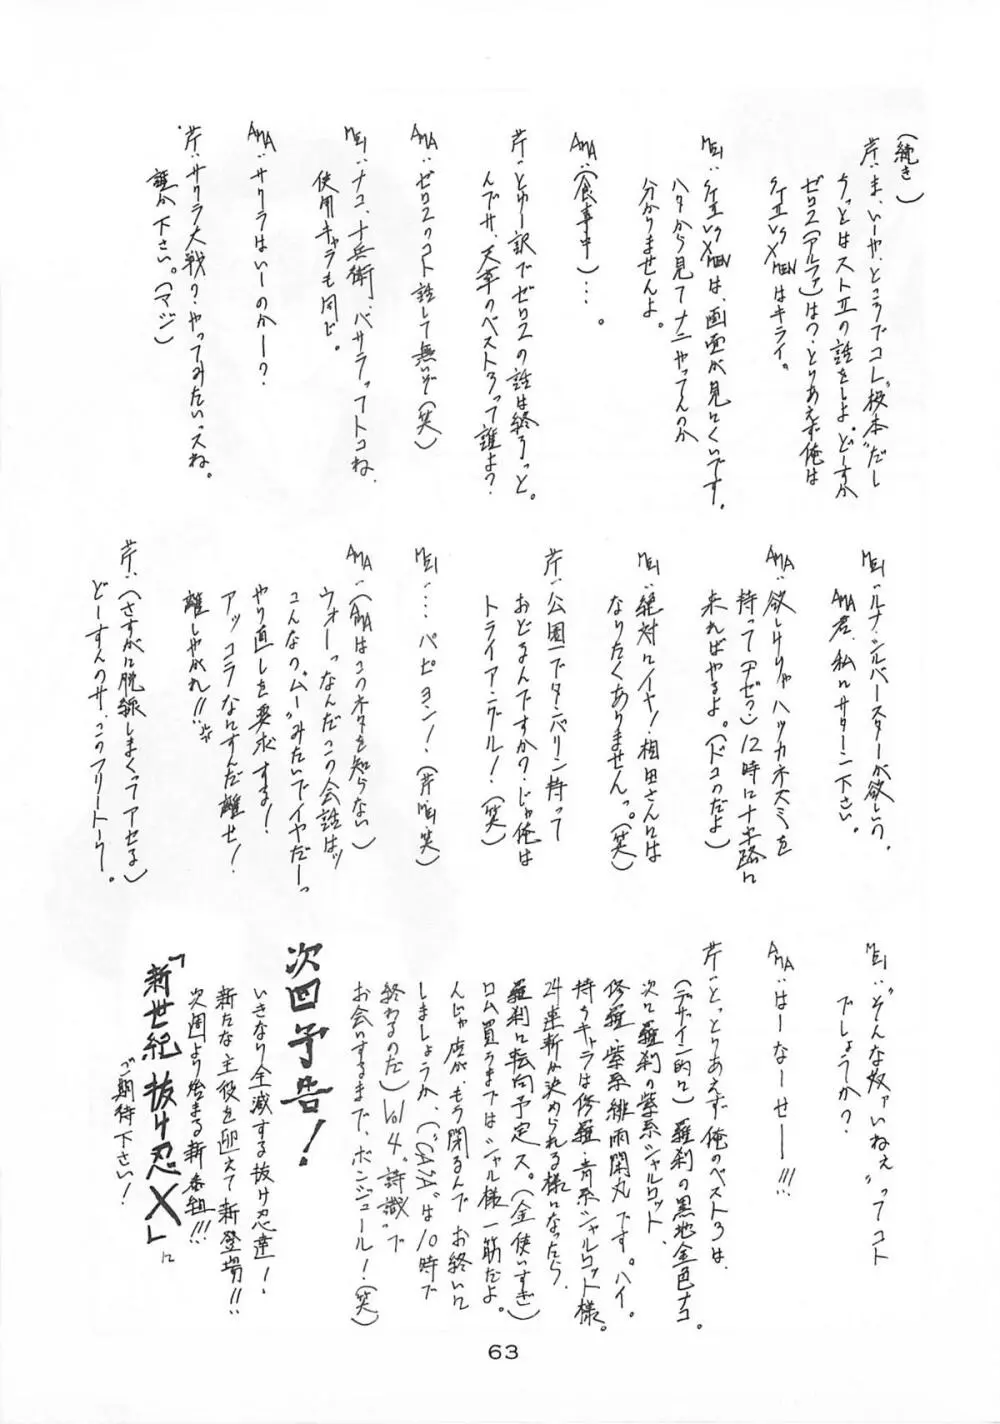 (続き)
芹:ま、いーや、ところでコレ"板本"だし
ちっとはストⅡの話をしよ。どーすか
ゼロ2(アルファ)は?とりあえず俺は
ケⅡ VS X MENはキライ。
MEI:ケⅡ VS X MENは、画面が見にくいです。
ハタから見てナニやってんのか
分かりませんよ。
AMA:(食事中)…。
芹:とゆー訳でゼロ2の話は終ろっと。
んでサ、天草のベスト3って誰よ?
AMA:ゼロ2のコト話して無いぞ(笑)
MEI:ナコ、十兵衛、バサラってトコね。
使用キャラも同じ。
AMA:サクラはいーのかー?
芹:サクラ大戦?やってみたいっスね。
誰か下さい。(マジ)
MEI:ルナ・シルバースターが欲しいの。
AMA君、私にサターン下さい。
AMA:欲しけりゃハツカネズミを
持って(ナゼ?)12時に十字路に
来ればやるよ。(ドコのだよ)
MEI:絶対にイヤ!相田さんには
なりたくありません。(笑)
芹:公園でタンバリン持って
おどるんですか?じゃ俺は
トライアングル!(笑)
MEI:…パピヨン!(芹・MEI笑)
AMA:(AMAはこのネタを知らない)
ウォーっなんだこの会話はッ
こんなの"ムー"みたいでイヤだーっ
やり直しを要求する!
アッコラなにすんだ離せ!
離しやがれ!!
芹:(さすがに脱線しまくってアセる)
どーすんのサ、このフリートーク。
MEI:"そんな奴ァいねぇ"ってコト
でしょうか?
AMA:はーなーせー!!!
芹:とっとりあえず俺のベスト3は、
(デザイン的に)羅刹の黒地金色ナコ。
次に羅刹の紫系シャルロット、
修羅・紫系緋雨閑丸です。ハイ。
持ちキャラは修羅・青系シャルロット様。
24連斬が決められる様になったら
羅刹に転向予定ス。(金使いすぎ)
ロム買うまではシャル様一筋だよ。
んじゃ店がもう閉るんでお終いに
しましょうか、("CASA"は10時で
終わるのだ)Vol 4."詩識"で
お会いするまで、ボンジュール!(笑)
次回予告!
いきなり全滅する抜け忍達!
新たな主役を迎えて新登場!!
次週より始まる新番組!!!
「新世紀 抜け忍X」に
ご期待下さい!
63